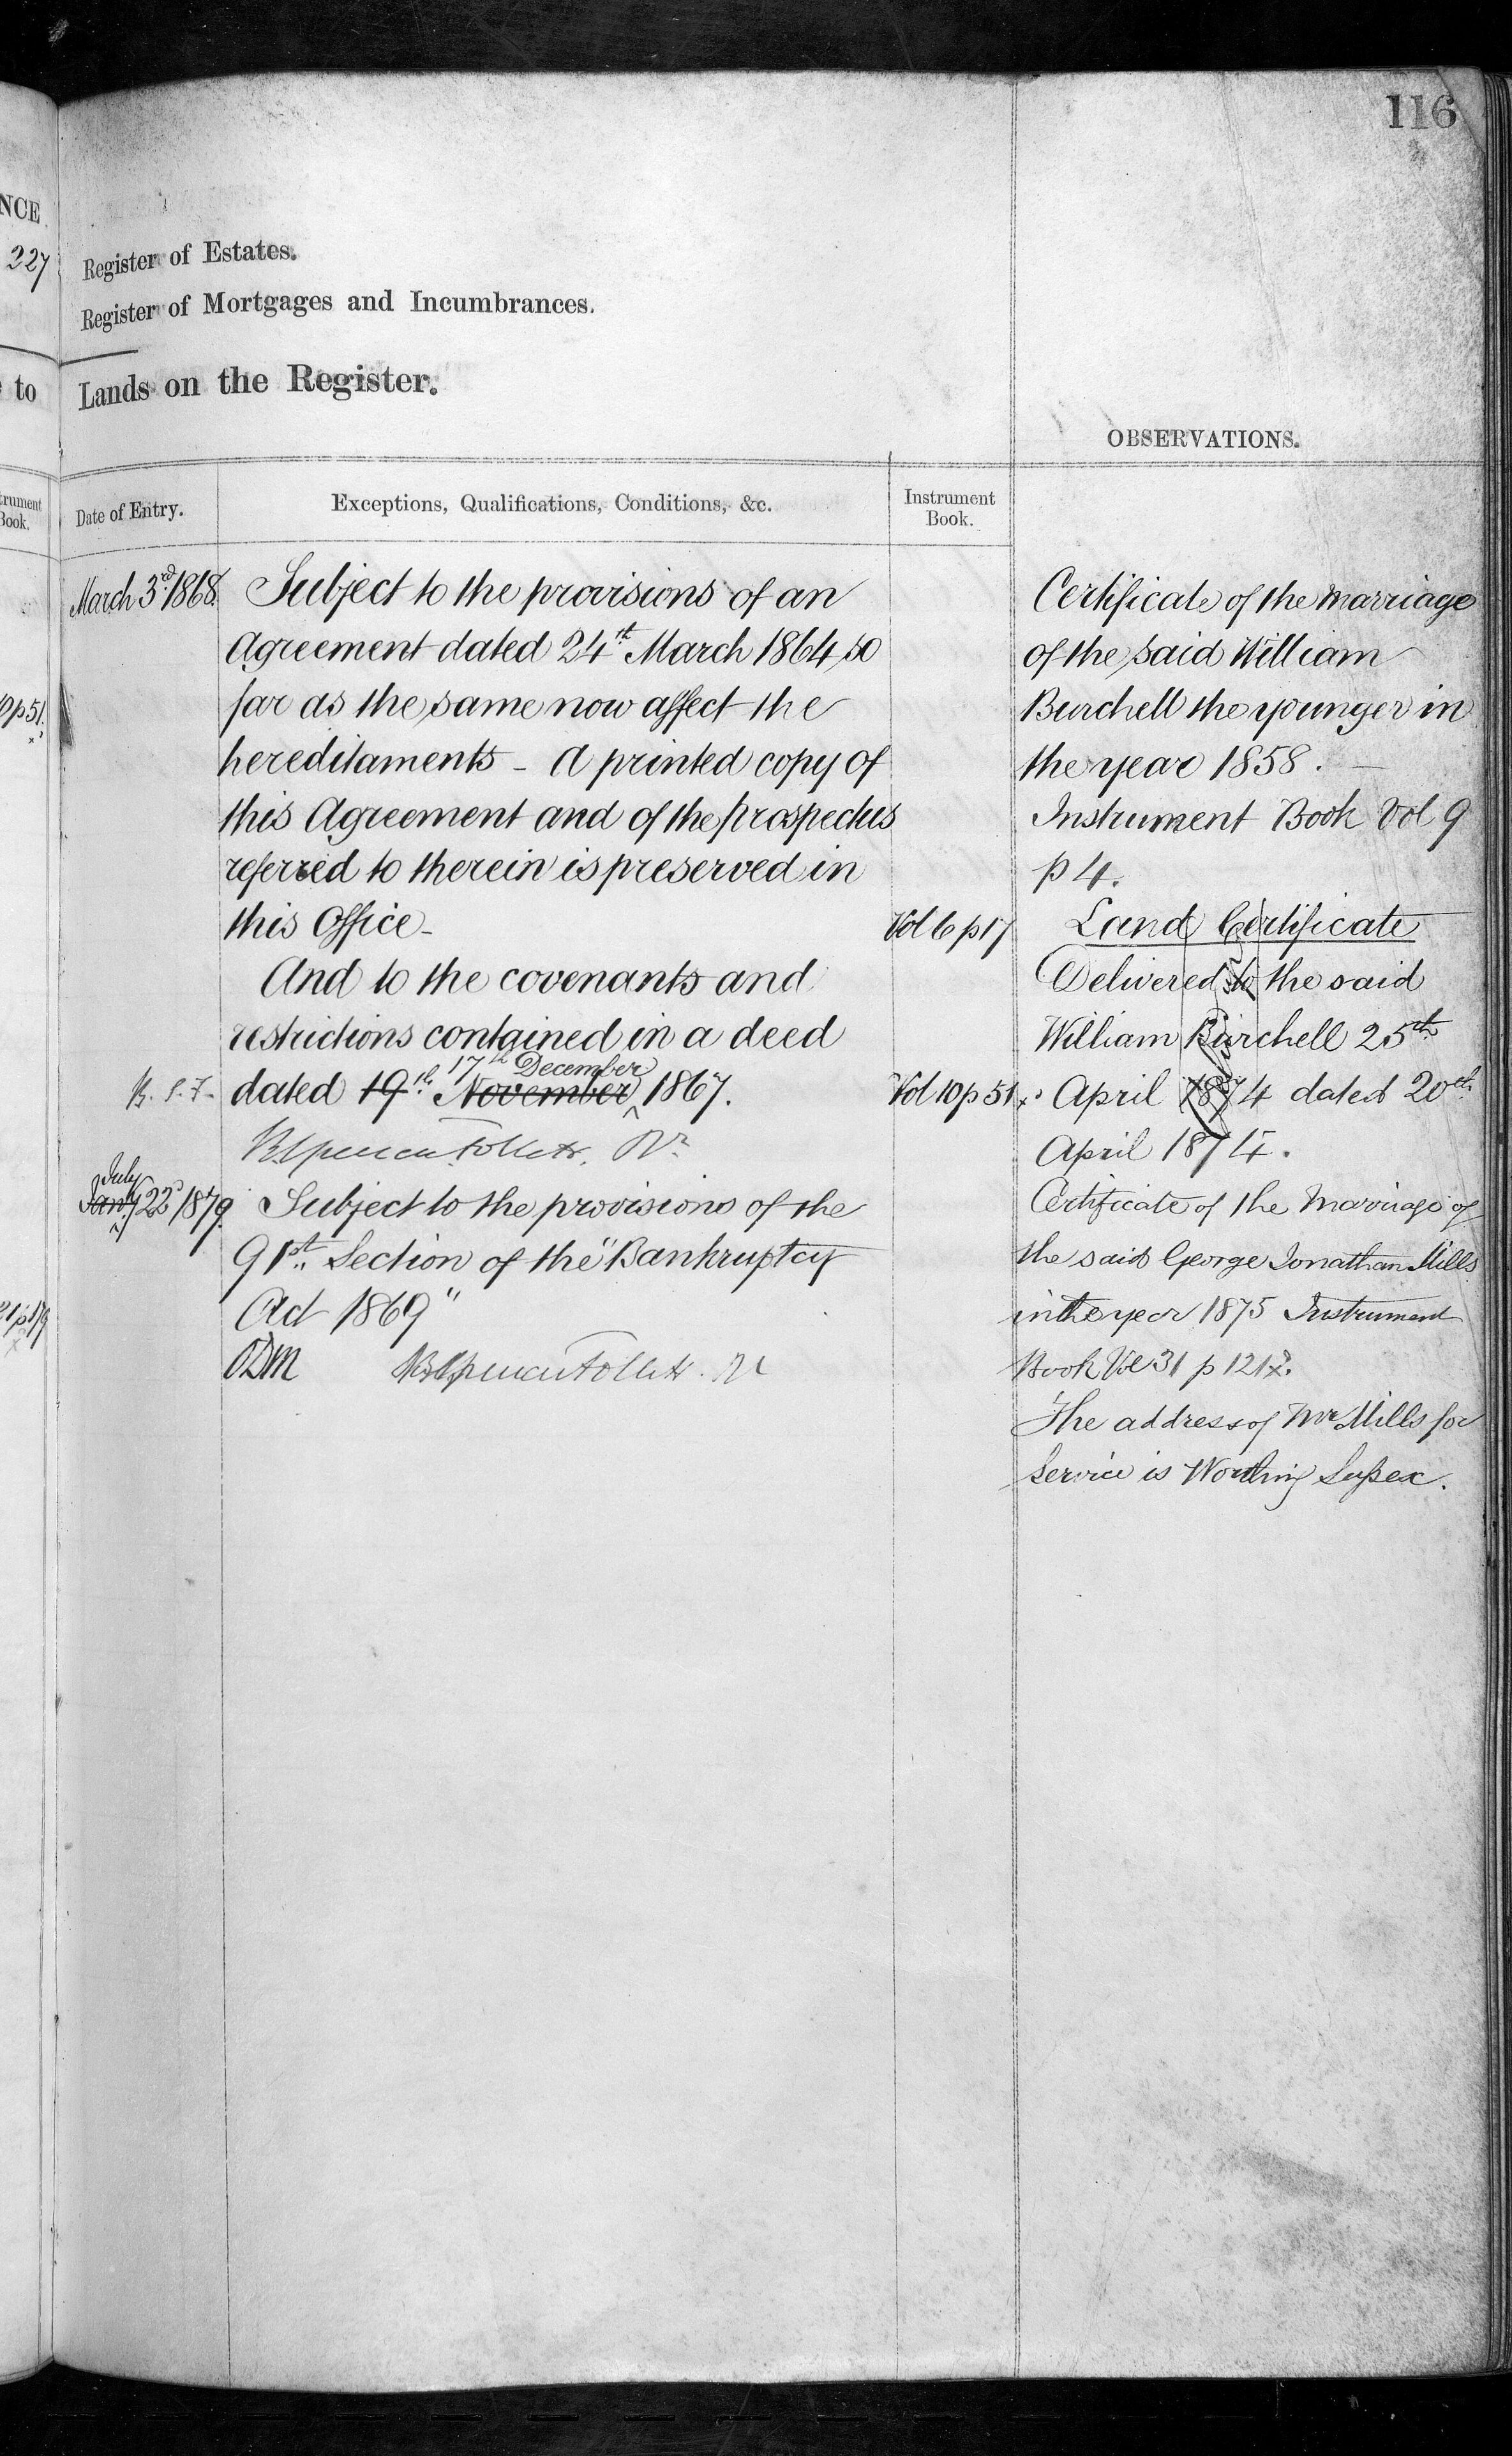 116
NCE
227
Register of Estates.
Register of Mortgages and Incumbrances.
to
Lands on the Register.
OBSERVATIONS.
trument
Book.
Date of Entry.
Exceptions, Qualifications, Conditions, &c.
Instrument
Book.
March 3rd 1868.
Subject to the provisions of an
Agreement dated 24th March 1864 so
far as the same now affect the
hereditaments - A printed copy of
this Agreement and of the prospectus
referred to therein is preserved in
this Office -
Vol 6 p 17
And to the covenants and
restrictions contained in a deed
17th December
B. S. F. dated 19th November 1867.
Vol 10 p 51
BSpencer Follett. Rr
July
Jany 22d 1879.
Subject to the provisions of the
91st Section of the "Bankruptcy
Act 1869"
BSpencer Follett.
p 51.
Certificate of the marriage
of the said William
Burchell the younger in
the year 1858. -
Instrument Book Vol 9
p 4.
Land Certificate
Delivered to the said
William Burchell 25th
April 1874 dated 20th
April 1874.
Certificate of the Marriage of
the said George Jonathan Mills
in the year 1875 Instrument
Book Vol 31 p 121
The address of Mr Mills for
Service is Worthing Sussex.